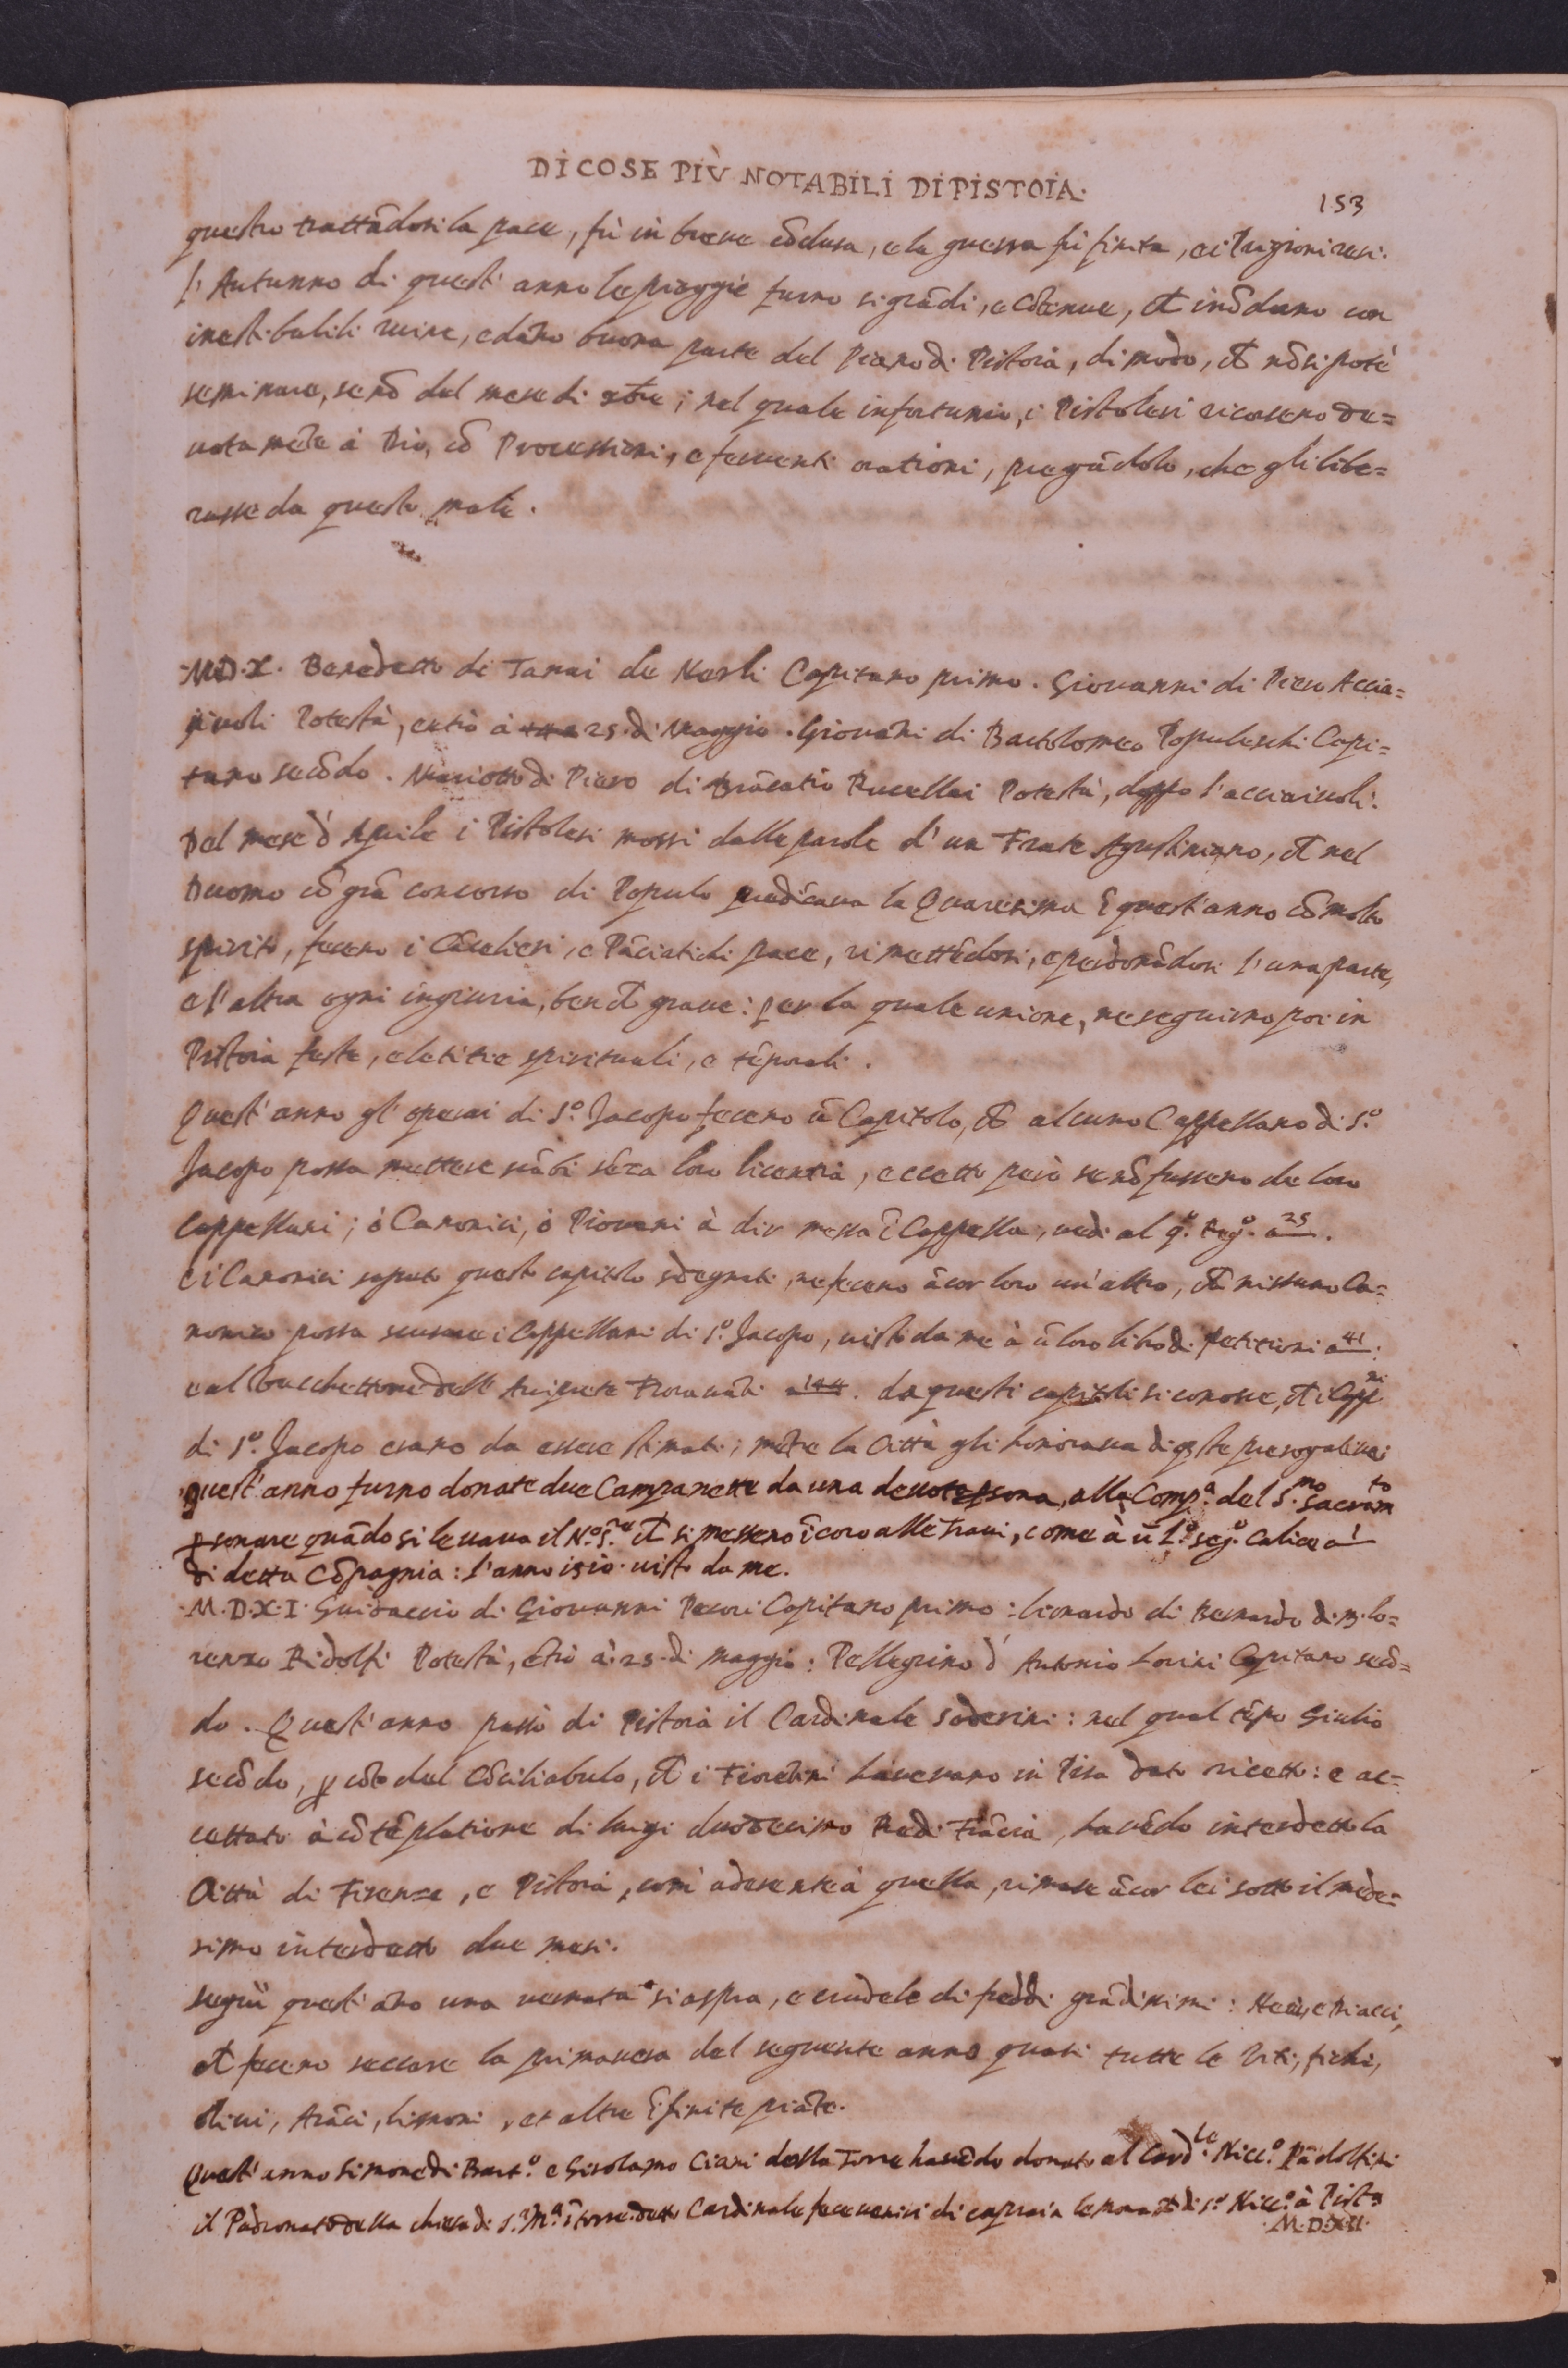 DI COSE PIÙ NOTABILI DI PISTOIA.
153
questo trattãdosi la pace, fù in breue cõclusa, e la guerra fù finita, e i Prigioni resi.
l'Autunno di quest'anno le pioggie furno si grãdi, e cõtenue, ch̃ inõdorno con
inestibabili ruine, e dãno buona parte del Piano di Pistoia, di modo, ch̃ nõ si potè
seminare, se nõ del mese di xbre; nel quale infortunio, i Pistolesi ricorseno de=
uotamẽte à Dio, cõ Processioni, e feruenti orationi, pregãdolo, che gli libe=
rasse da questo male.
M.D.X. Benedetto di Tanai de Nerli Capitano primo. Giouanni di Piero Accia=
iuoli Potestà, ẽtrò à 25. di Maggio. Giouãni di Bartolomeo Popoleschi Capi=
tano secõdo. Mariotto di Piero di Brãcatio Rucellai Potestà, doppo l'acciaiuoli.
Del mese d'Aprile i Pistolesi mossi dalle parole d'un Frate Agustiniano, ch̃ nel
Duomo cõ grã concorso di Populo predicaua la Quaresima ĩ quest'anno cõ molto
spirito, feceno i Cãcelieri, e Pãciatichi pace, rimettẽdosi, e perdonãdosi l'una parte,
e l'altra ogni ingiuria, ben ch̃ graue: per la quale unione, ne seguirno poi in
Pistoia feste, e letitie spirituali, e tẽporali.
Quest'anno gl'operai di S.º Jacopo feceno ũ Capitolo, ch̃ alcuno Cappellano di S.º
Jacopo possa mettere scãbi sẽza loro licentia, eccetto però se nõ fusseno de loro
Cappellani; ò Canonici, ò Piouani à dir messa ĩ Cappella, uedi al q.º seg.º a 25.
E i Canonici saputo questo capitolo sdegnati, ne feceno ãcor loro un'altro, ch̃ nissuno Ca=
nonico possa scusare i Cappellani di S.º Jacopo, uisto da me à ũ loro libro di petitioni a 41.
e al bucchettone dell' Arciprete Fiorauãti a 144. da questi capitoli si conosce, ch̃ i Capp.ni
di S.º Jacopo erano da essere stimati; mẽtre la Città gli honoraua di q̃ste prerogatiue.
Quest'anno furno donate due Campanette da una deuota p̱sona, alla Comp.ª del S.mo Sacram.to
p̱ sonare quãdo si leuaua il N.º S.re ch̃ si messeno ĩ coro alle Traui, come à ũ L.º seg.º Calice a
di detta Cõpagnia: l'anno 1510. uisto da me.
M.D.X.I. Guidaccio di Giouanni Pecori Capitano primo: Lionardo di Bernardo di M. Lo=
renzo Ridolfi Potestà, ẽtrò à 25. di maggio: Pellegrino d'Antonio Lorini Capitano secõ=
do. Quest'anno passò di Pistoia il Cardinale Soderini: nel qual tẽpo Giulio
secõdo, p̱ cõto del Cõciliabulo, ch̃ i Fiorẽtini haueuano in Pisa dato ricetto: e ac=
cettato à cõtẽplatione di Luigi duodecimo Re di Frãcia, hauẽdo interdetto la
Città di Firenze, e Pistoia, com'aderente à quella, rimase ãcor lei sotto il mede=
simo interdetto due mesi.
Seguì quest'ãno una uernata si aspra, e crudele di freddi grãdissimi: Neui, e Diacci,
ch̃ feceno seccare la primauera del seguente anno quasi tutte le Viti, fichi,
oliui, Arãci, limoni, et altre ĩfinite piãte.
Quest'anno Simone di Bart.º e Girolamo Ciari della Torre hauẽdo donato al Card.le Nicc.º Pãdolfini
il Padronato della chiesa di S.ª M.ª ĩ torre. detto Cardinale fece uenire di capraia le monache di S.º Nicc.º à Pist.ª
M.D.XII.